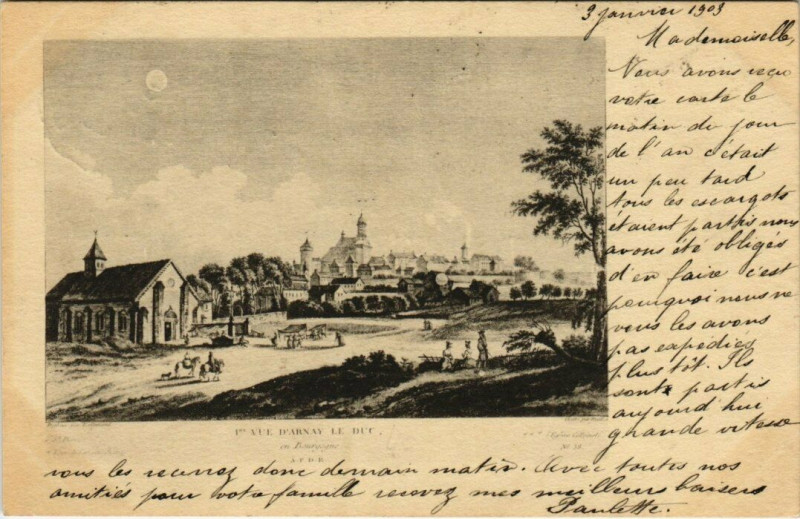 3 janvier 1903
Mademoiselle,
Nous avons reçu
votre carte le
matin du jour
de l'an c'était
un peu tard
tous les escargots
étaient partis nous
avons été obligés
d'en faire c'est
pourquoi nous ne
vous les avons
pas expédiés
plus tôt. Ils
sont partis
aujourd'hui
grande vitesse
vous les recevrez donc demain matin. Avec toutes nos
amitiés pour votre famille recevez mes meilleurs baisers
Paulette.
1re VUE D'ARNAY LE DUC,
en Bourgogne
A.P.D.R.
No. 58